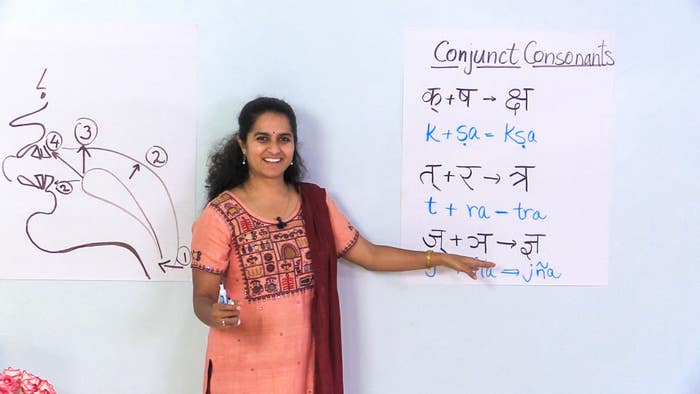 3
4
2
1
Conjunct Consonants
क् + ष → क्ष
k + ṣa = kṣa
त् + र → त्र
t + ra – tra
ज् + ञ → ज्ञ
→ jña